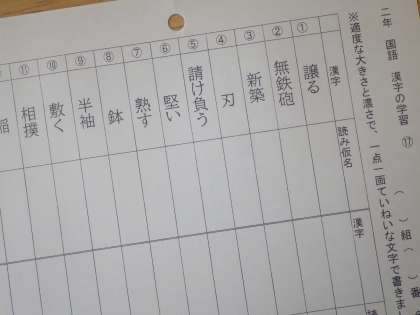 二年 国語 漢字の学習 ⑰ ( )組( )番
※適度な大きさと濃さで、一点一画ていねいな文字で書きまし
漢字
読み仮名
漢字
① 譲る
② 無鉄砲
③ 新築
④ 刃
⑤ 請け負う
⑥ 堅い
⑦ 熟す
⑧ 鉢
⑨ 半袖
⑩ 敷く
⑪ 相撲
稲